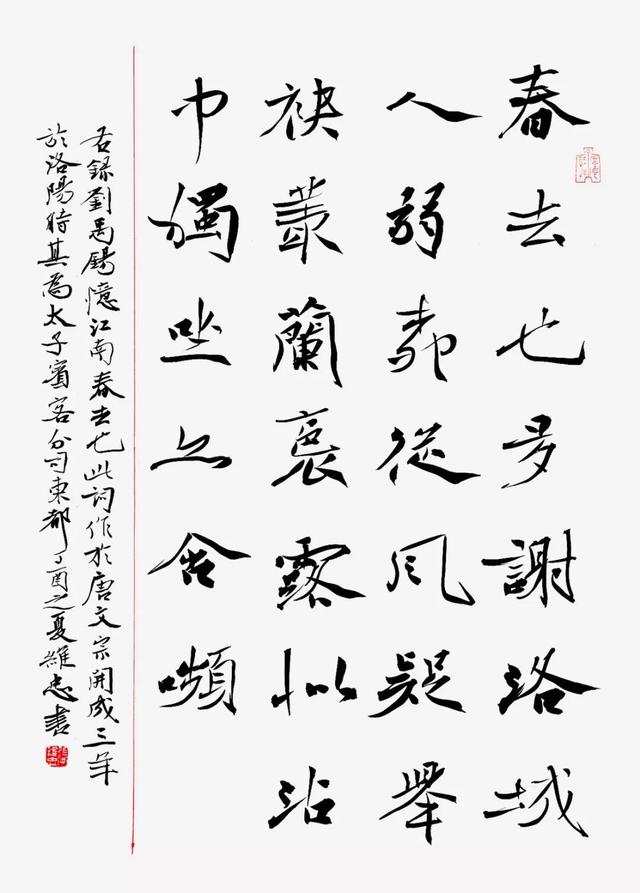 春去也多謝洛城
人弱柳從風疑舉
袂叢蘭裛露似沾
巾獨坐亦含嚬
右錄劉禹錫憶江南春去也此詞作於唐文宗開成三年
於洛陽時其為太子賓客分司東都丁酉之夏維忠書